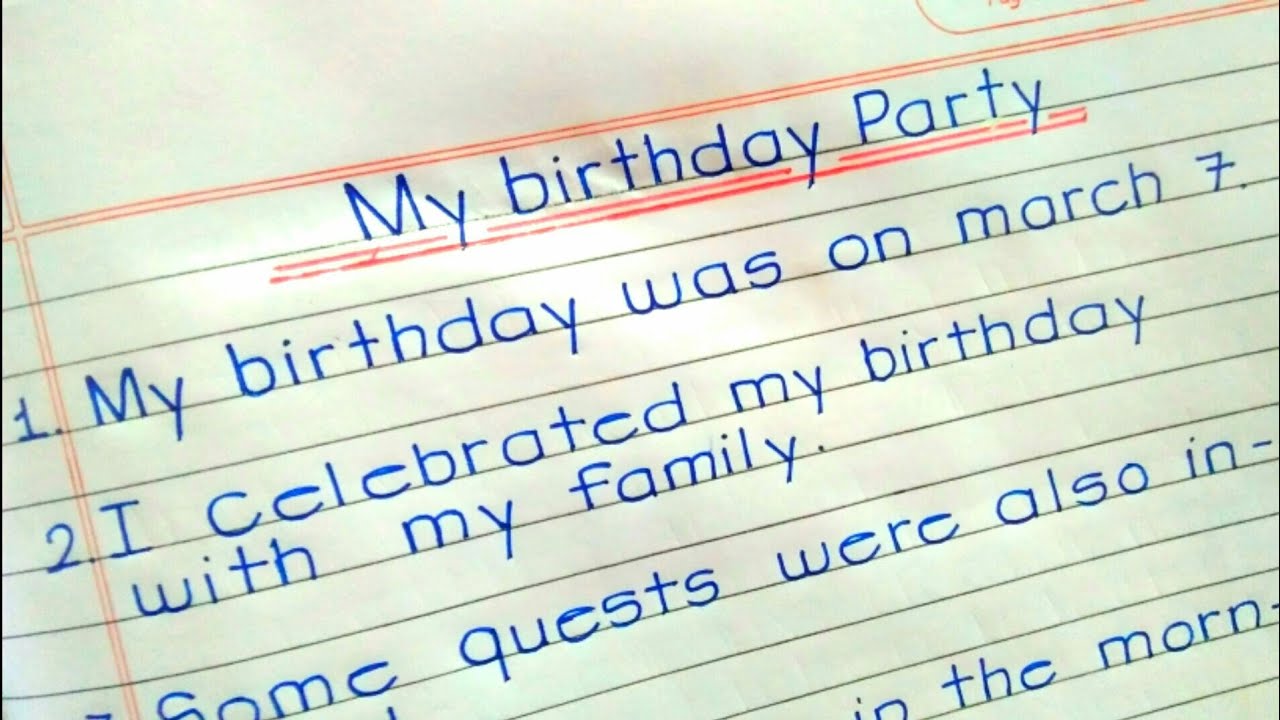 My birthday Party
1. My birthday was on march 7.
2. I celebrated my birthday
with my family.
Some quests were also in-
in the morn-